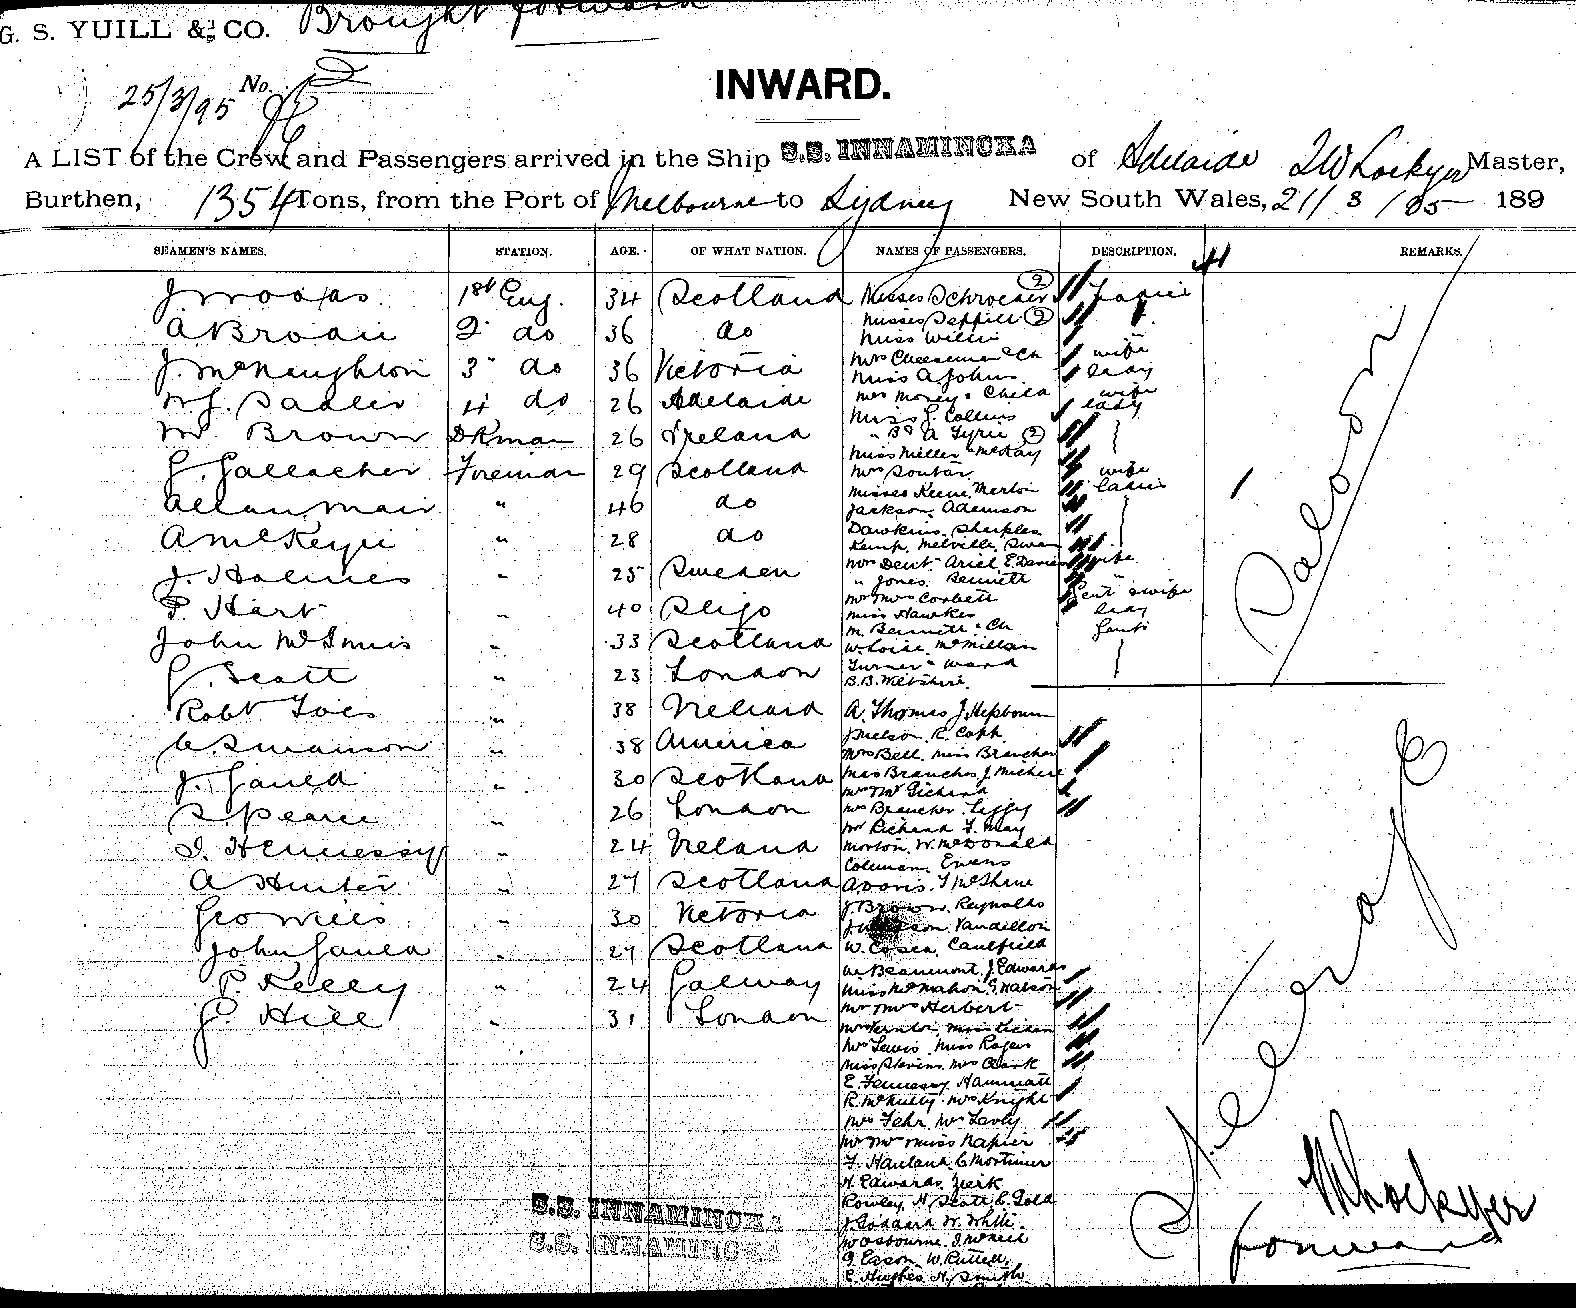 G. S. YUILL & CO. Brought forward
INWARD.
25/3/95 No.
A LIST of the Crew and Passengers arrived in the Ship S.S. INNAMINCKA of Adelaide Lockyer Master,
Burthen, 1354 Tons, from the Port of Melbourne to Sydney New South Wales, 21/3/95 189
SEAMEN'S NAMES. STATION. AGE. OF WHAT NATION. NAMES OF PASSENGERS. DESCRIPTION. REMARKS.
1st Eng. 34 Scotland Misses Schroeder (2) Ladies
A Brodie 2 do 36 do Misses (2)
Miss Wilkie
J. McNaughton 3 do 36 Victoria Mrs Cheeseman & Ch wife
Miss A Johns lady
W J. Sadler 4 do 26 Adelaide Mrs Money & Child wife
Miss J. Collins lady
M Brown DKman 26 Ireland (2)
Miss Miller McKay
J Gallacher Fireman 29 Scotland Mrs Soutar wife
Misses Keene Merton Ladies
Allan Mair " 46 do Jackson Adamson
Dawkins Sharples
A McKeyie " 28 do Kemp Melville Swan
Mrs Dent Ariel E. Davies wife
J. Holmes " 25 Sweden " Jones Bennett "
Mr Mrs Corbett Gent & wife
P. Hart " 40 Sligo Miss Hawkes lady
M. Bennett & Ch Gents
John McInnis " 33 Scotland McMillan
Turner Ward
J. Scott " 23 London B.B. Wiltshire
Saloon
Robt " 38 Ireland A. Thomas J. Hepbourn
J Nelson R. Capp
C. Swanson " 38 America Mrs Bell Miss Brancher
J. Gauld " 30 Scotland Miss Branches J. Michere
S Pearce " 26 London Mrs Brancher
Mr Richard F. May
J. Hennessy " 24 Ireland Morton W. McDonald
Coleman Evans
A Hunter " 27 Scotland A Davis McShane
Geo Mills " 30 Victoria J. Brown Reynolds
John Gauld " 27 Scotland W. Caulfield
P. Kelly " 24 Galway W. Beaumont J. Edwards
Miss McMahon Watson
J. Hill " 31 London Mr Mrs Herbert
Mrs Lewis Miss Rogers
Miss Stevens Mrs Clark
E. Fennessy Hammatt
R. McNulty Mrs Knight
Mrs Fehr
Mr Mrs Miss Napier
Steerage
C Mortimer
H. Edwards
S.S. INNAMINCKA Rowley H Scott C. Gold
J Goddard W. White
S.S. INNAMINCKA W Osbourne J. McNeil
J. Esson W. Ruttell
E. Hughes H. Smith
Lockyer
forward